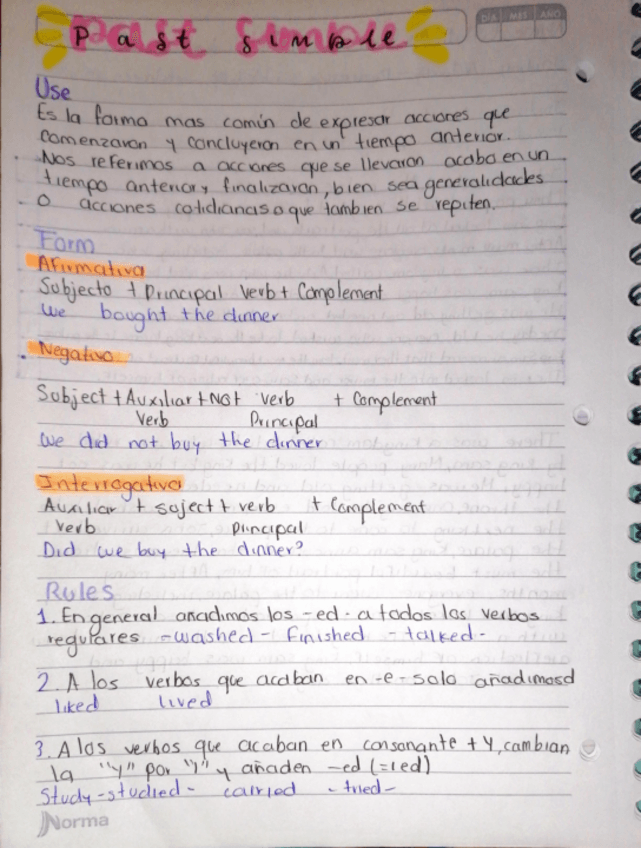 past simple
DÍA MES AÑO
Use
Es la forma mas común de expresar acciones que
comenzaron y concluyeron en un tiempo anterior.
Nos referimos a acciones que se llevaron acabo en un
tiempo anterior y finalizaron, bien sea generalidades
o acciones cotidianas o que tambien se repiten.
Form
Afirmativa
Subjecto + Principal Verb + Complement
We bought the dinner
Negativa
Subject + Auxiliar + Not verb + Complement
Verb Principal
We did not buy the dinner
Interrogativa
Auxiliar + soject + verb + Complement
Verb Principal
Did we buy the dinner?
Rules
1. En general anadimos los -ed- a todos los verbos
regulares -washed- finished -talked-
2. A los verbos que acaban en -e- solo añadimosd
liked lived
3. A los verbos que acaban en consonante + Y, cambian
la "Y" por "I" y añaden -ed (=ied)
Study-studied- carried -tried-
Norma